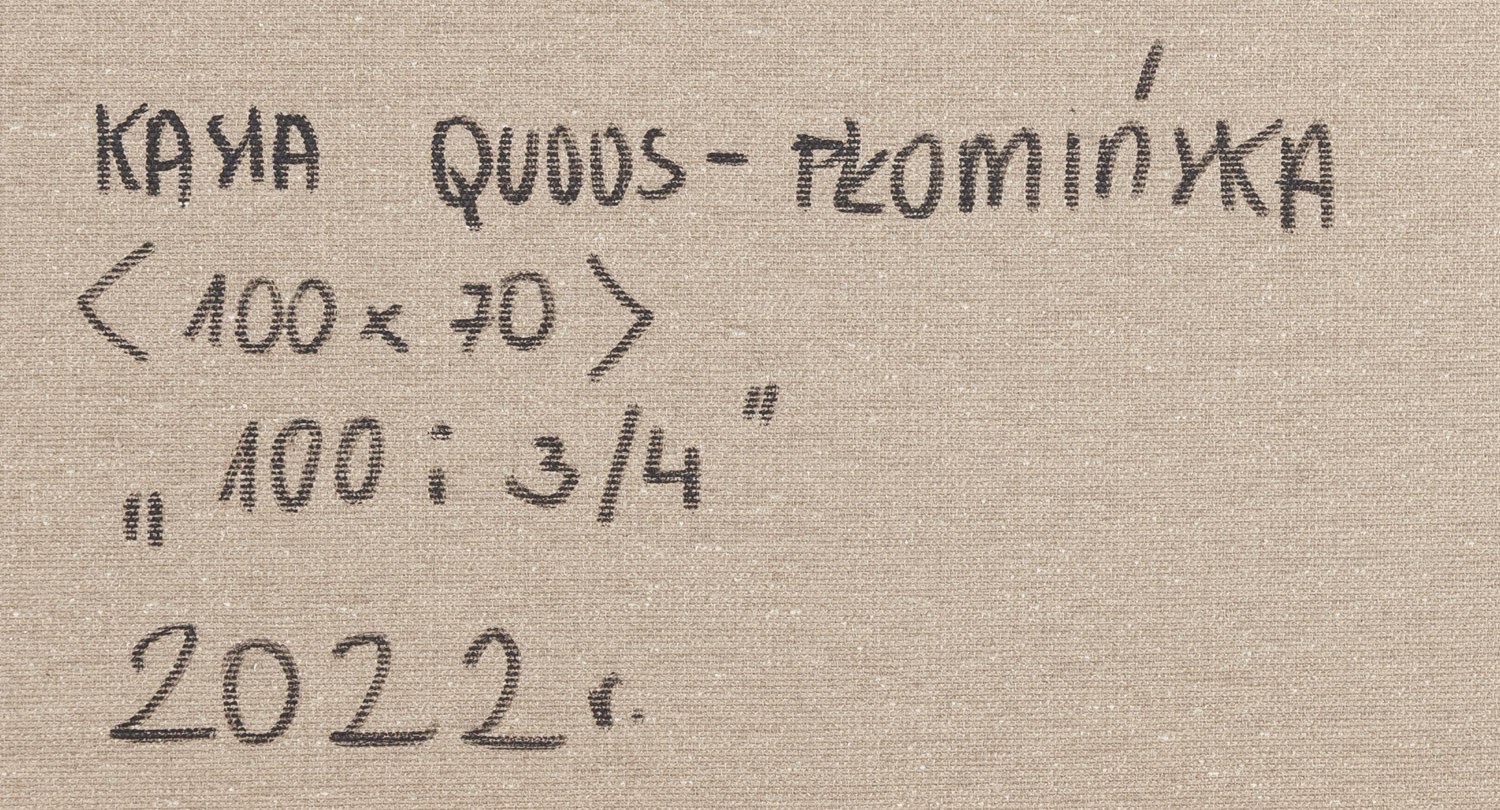 KASIA QUOOS - PŁOMIŃSKA
<100 x 70>
„100 i 3/4"
2022 r.